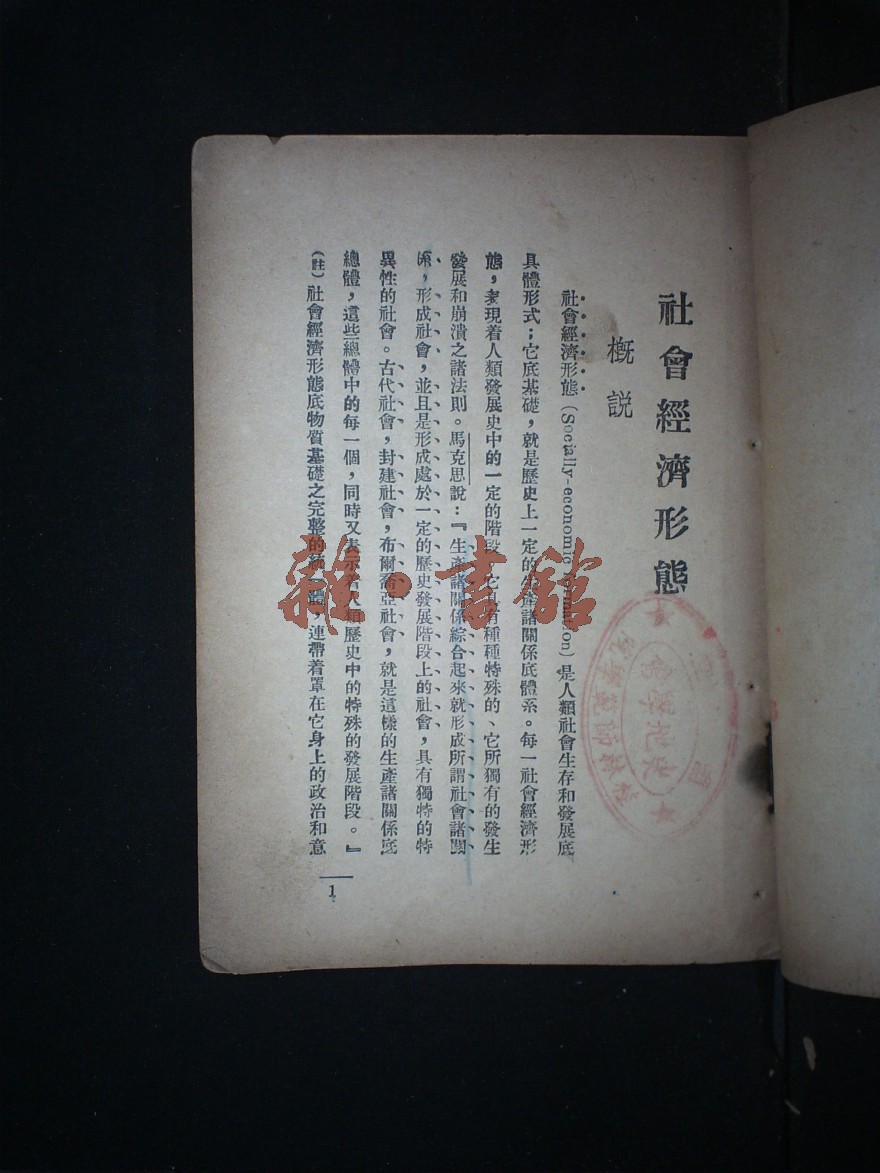 社會經濟形態
概説
社會經濟形態(Socially-economic formation)是人類社會生存和發展底
具體形式;它底基礎,就是歷史上一定的生產諸關係底體系。每一社會經濟形
態,表現着人類發展史中的一定的階段,它具有種種特殊的、它所獨有的發生
發展和崩潰之諸法則。馬克思説:『生產諸關係綜合起來就形成所謂社會諸關
係,形成社會,並且是形成處於一定的歷史發展階段上的社會,具有獨特的特
異性的社會。古代社會,封建社會,布爾喬亞社會,就是這樣的生產諸關係底
總體,這些總體中的每一個,同時又表示着人類歷史中的特殊的發展階段。』
(註)社會經濟形態底物質基礎之完整的統一體,連帶着罩在它身上的政治和意
1
雜·書館